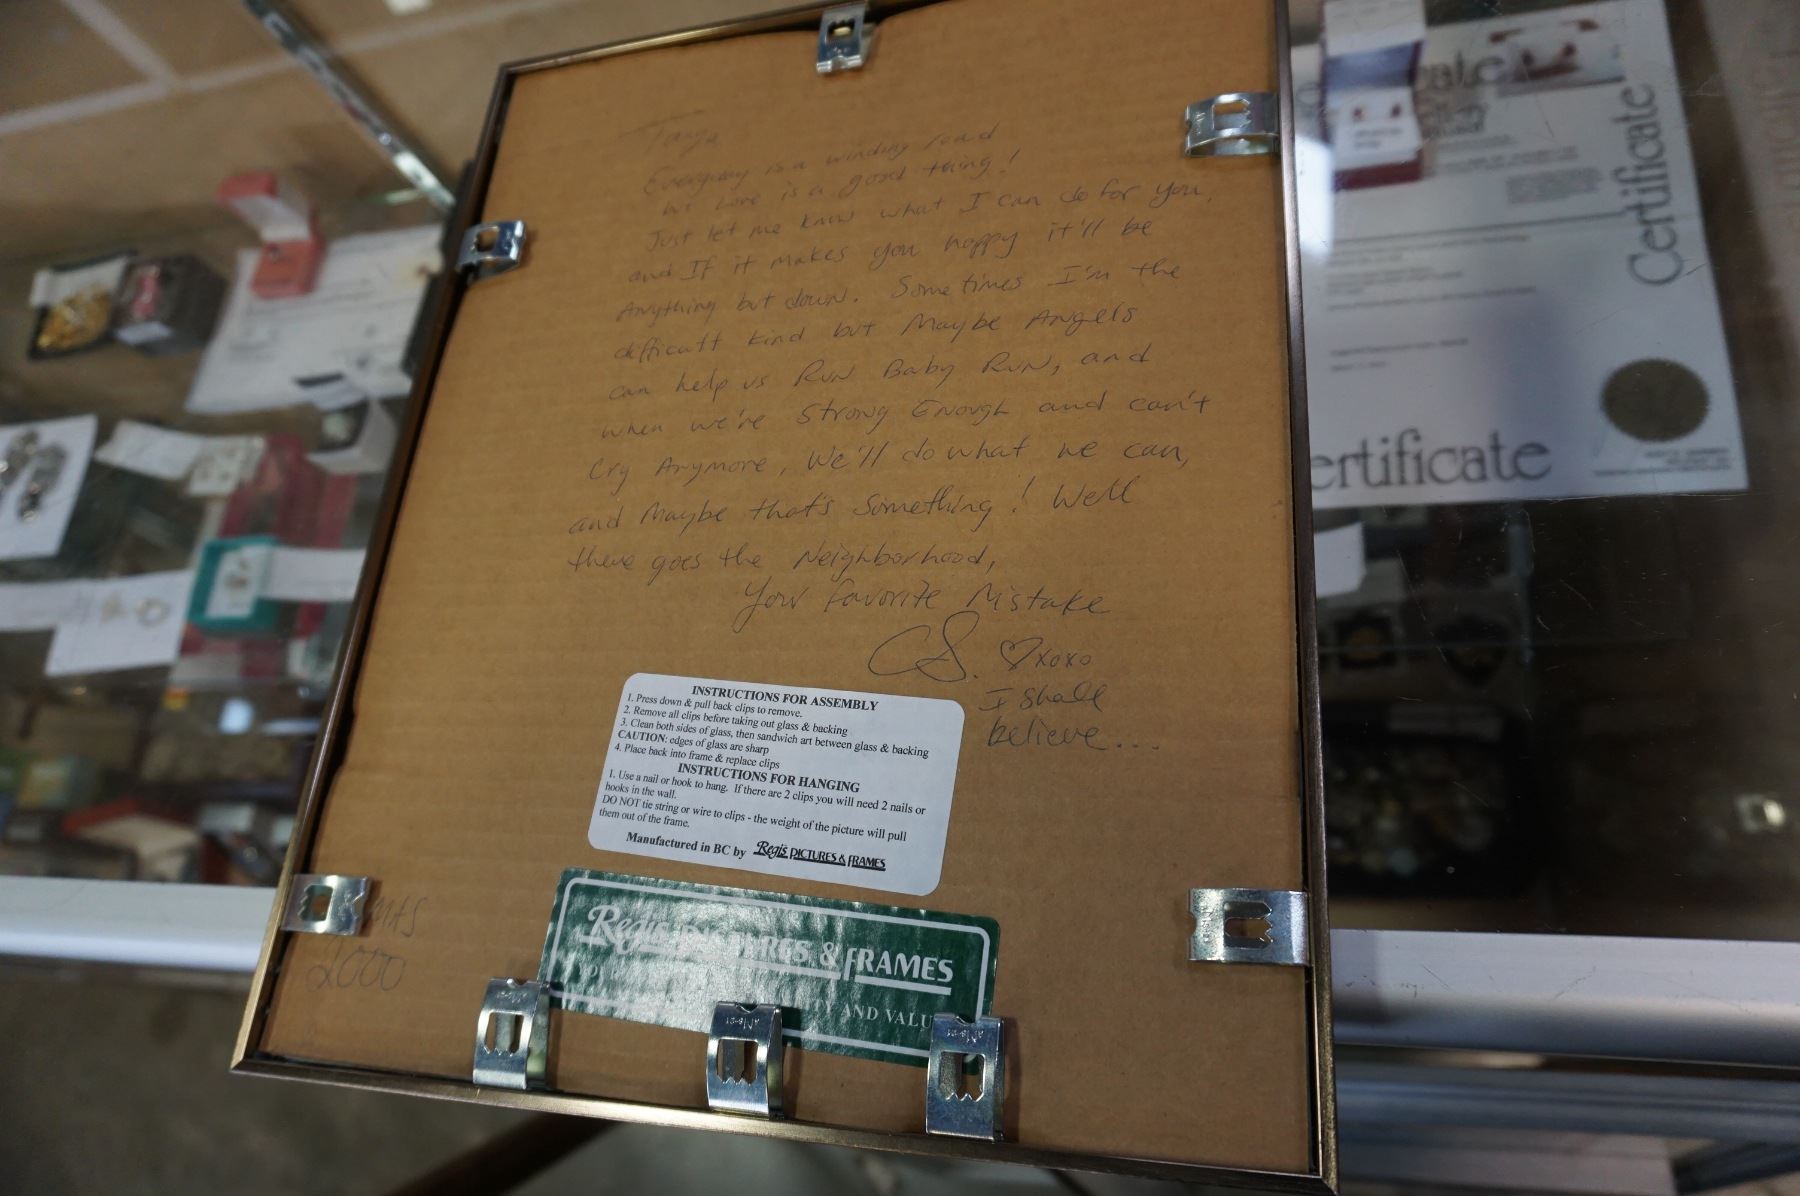 Tanya
Everyday is a winding road
but love is a good thing!
Just let me know what I can do for you,
and If it makes you happy it'll be
Anything but down. Sometimes I'm the
difficult kind but Maybe Angels
can help us Run Baby Run, and
when we're Strong Enough and can't
Cry Anymore, We'll do what we can,
and Maybe that's Something! Well
there goes the Neighborhood,
Your Favorite Mistake
CS. ♡xoxo
I shall
believe...
INSTRUCTIONS FOR ASSEMBLY
1. Press down & pull back clips to remove.
2. Remove all clips before taking out glass & backing
3. Clean both sides of glass, then sandwich art between glass & backing
CAUTION: edges of glass are sharp
4. Place back into frame & replace clips
INSTRUCTIONS FOR HANGING
1. Use a nail or hook to hang. If there are 2 clips you will need 2 nails or
hooks in the wall.
DO NOT tie string or wire to clips - the weight of the picture will pull
them out of the frame.
Manufactured in BC by Regis PICTURES & FRAMES
Regis PICTURES & FRAMES
AND VALU
2000
Certificate
ertificate